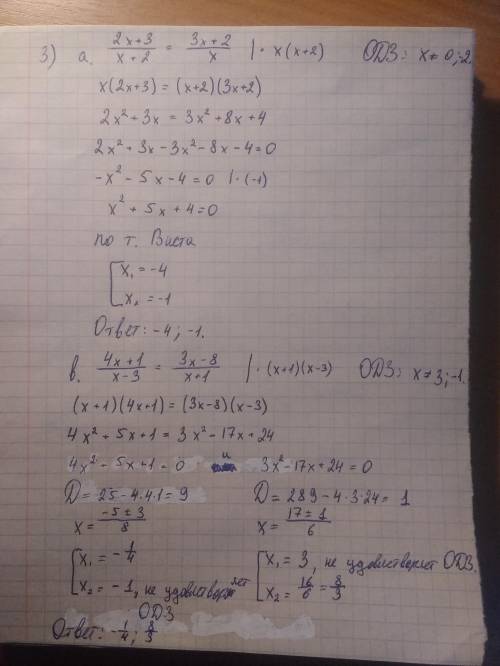 3) а. (2x+3)/(x+2) = (3x+2)/x | · x(x+2) ОДЗ: x ≠ 0; -2.
x(2x+3) = (x+2)(3x+2)
2x² + 3x = 3x² + 8x + 4
2x² + 3x - 3x² - 8x - 4 = 0
-x² - 5x - 4 = 0 | · (-1)
x² + 5x + 4 = 0
по т. Виета
[ x₁ = -4
x₂ = -1
Ответ: -4; -1.
в. (4x+1)/(x-3) = (3x-8)/(x+1) | · (x+1)(x-3) ОДЗ: x ≠ 3; -1.
(x+1)(4x+1) = (3x-8)(x-3)
4x² + 5x + 1 = 3x² - 17x + 24
4x² - 5x + 1 = 0 и 3x² - 17x + 24 = 0
D = 25 - 4·4·1 = 9 D = 289 - 4·3·24 = 1
x = (-5 ± 3)/8 x = (17 ± 1)/6
[ x₁ = -1/4 [ x₁ = 3, не удовлетворяет ОДЗ.
x₂ = -1, не удовлетворяет ОДЗ x₂ = 16/6 = 8/3
Ответ: -1/4; 8/3